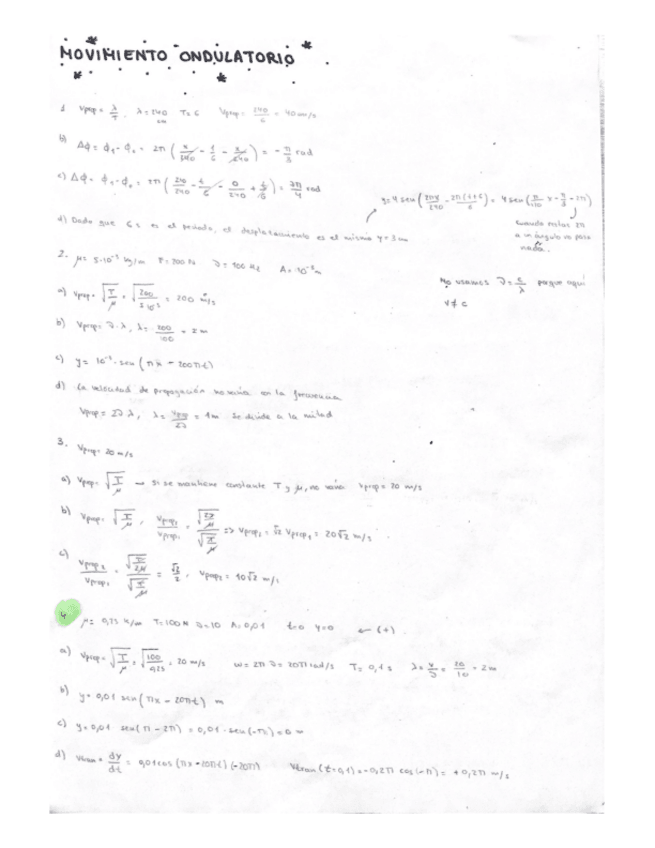 MOVIMIENTO ONDULATORIO
1 Vprop = λ/T . λ = 240 cm T = 6 Vprop = 240/6 = 40 cm/s
b) Δφ = φ₁ - φ₂ = 2π ( - 1/6 - ) = - π/3 rad
c) Δφ = φ₁ - φ₂ = 2π (210/240 - - 0/240 + ) = rad
y = 4 sen ( - 2π(t+6)/6 ) = 4 sen ( x - - 2π)
d) Dado que 6s es el periodo, el desplazamiento es el mismo y = 3 cm
cuando restas 2π a un ángulo no pasa nada.
2. μ = 5·10⁻³ kg/m T = 200 N ν = 100 Hz A = 10⁻² m
No usamos ν = c/λ porque aquí
v ≠ c
a) Vprop = √(T/μ) = = 200 m/s
b) Vprop = ν · λ, λ = 200/100 = 2 m
c) y = 10⁻² · sen (πx - 200πt)
d) La velocidad de propagación no varía con la frecuencia
Vprop = 2ν λ, λ = Vprop/2ν = 1m Se divide a la mitad
3. Vprop = 20 m/s
a) Vprop = √(T/μ) → si se mantiene constante T y μ, no varía Vprop = 20 m/s
b) Vprop = √(T/μ) , Vprop₂/Vprop₁ = √(2T/μ)/√(T/μ) => Vprop₂ = √2 Vprop₁ = 20√2 m/s
c) Vprop₂/Vprop₁ = √(T/2μ)/√(T/μ) = √2/2 , Vprop₂ = 10√2 m/s
4. μ = 0,25 K/m T = 100 N ν = 10 A = 0,01 t=0 y=0 ← (+)
a) Vprop = √(T/μ) = √(100/0,25) = 20 m/s ω = 2π ν = 20π rad/s T = 0,1 s λ = v/ν = 20/10 = 2m
b) y = 0,01 sen (πx - 20πt) m
c) y = 0,01 sen (π - 2π) = 0,01 · sen (-π) = 0 m
d) Vtran = dy/dt = 0,01 cos (πx - 20πt) (-20π) Vtran (t=0,1) = -0,2π cos (-π) = +0,2π m/s